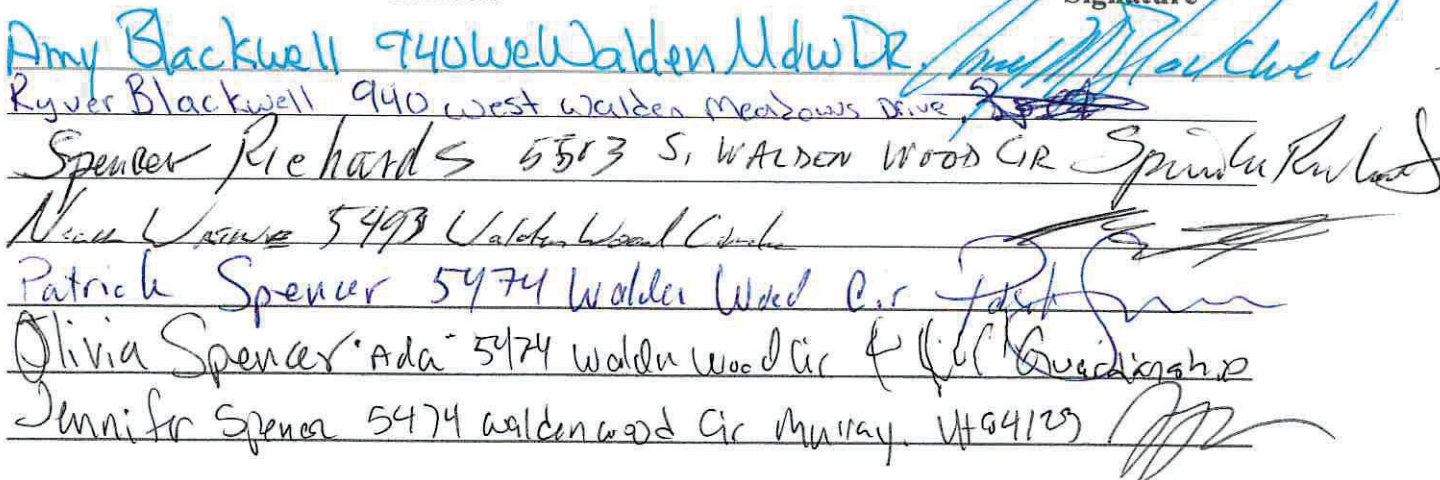 Signature
Amy Blackwell 940 We Walden Mdw DR. Amy M Blackwell
Ryver Blackwell 940 west walden Meadows Drive
Spencer Richards 5583 S. WALDEN WOOD CIR
5493 Walden Wood Circle
Patrick Spencer 5474 Walden Wood Cir
Olivia Spencer "Ada" 5474 waldn Wood Cir Guardianship
Jennifer Spencer 5474 waldenwood Cir Murray, Ut 84123